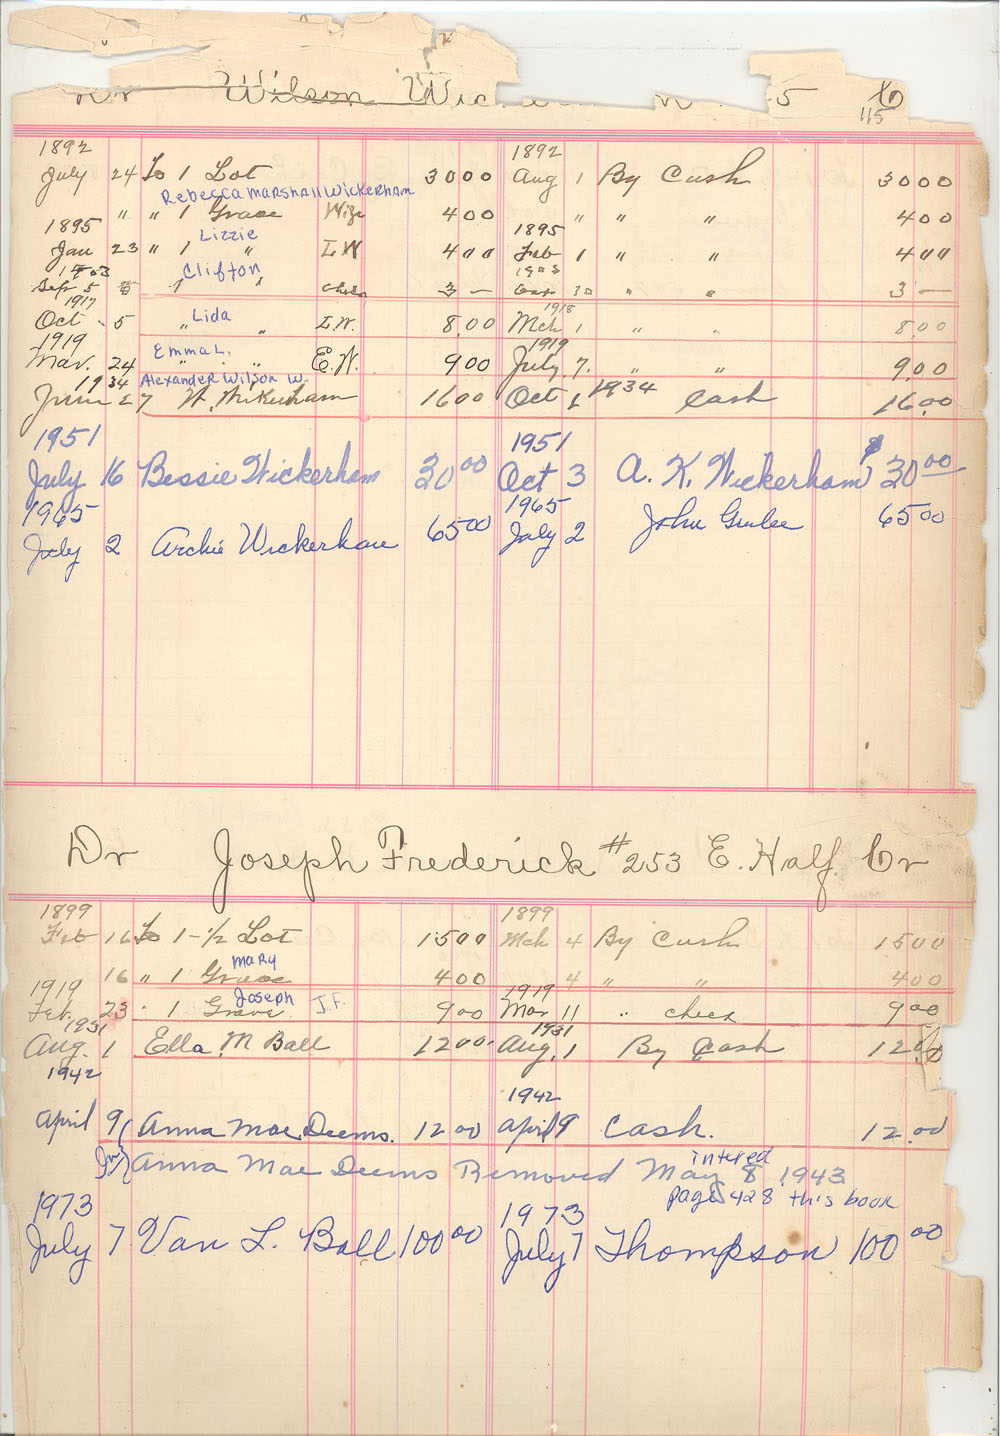 Dr Wilson 5 Cr
115
1892 1892
July 24 To 1 Lot 30 00 Aug 1 By Cash 30 00
Rebecca Marshall Wickerham
" " 1 Grave Wife 4 00 " " " 4 00
1895 Lizzie 1895
Jan 23 " 1 " L W 4 00 Feb 1 " " 4 00
1903 Clifton 1903
Sep 5 5 3 — 30 " " 3 —
1917 1918
Oct. 5 " Lida " L. W. 8.00 Mch 1 " " 8.00
1919 Emma L. 1919
Mar. 24 " " " E. W. 9 00 July 7. " " 9.00
1934 Alexander Wilson W. 1934
June 27 W. Wickerham 16 00 Oct 1 Cash 16.00
1951 1951
July 16 Bessie Wickerham 30 00 Oct 3 A. K. Wickerham $30 00
1965 1965
July 2 Archie Wickerham 65 00 July 2 John Gulee 65 00
Dr Joseph Frederick #253 E. Half. Cr
1899 1899
Feb 16 To 1-1/2 Lot 15 00 Mch 4 By Cash 15 00
Mary
16 " 1 Grave 4 00 4 " " 4 00
1919 Joseph 1919
Feb. 23 " 1 Grave J. F. 9 00 Mar 11 " check 9 00
1931 1931
Aug. 1 Ella. M Ball 12 00. Aug. 1 By Cash 12.00
1942 1942
April 9 Anna Mae Deems. 12 00 April 9 Cash. 12.00
Anna Mae Deems Removed May 8, 1943
intered page 428 this book
1973 1973
July 7 Van L. Ball 100 00 July 7 Thompson 100 00